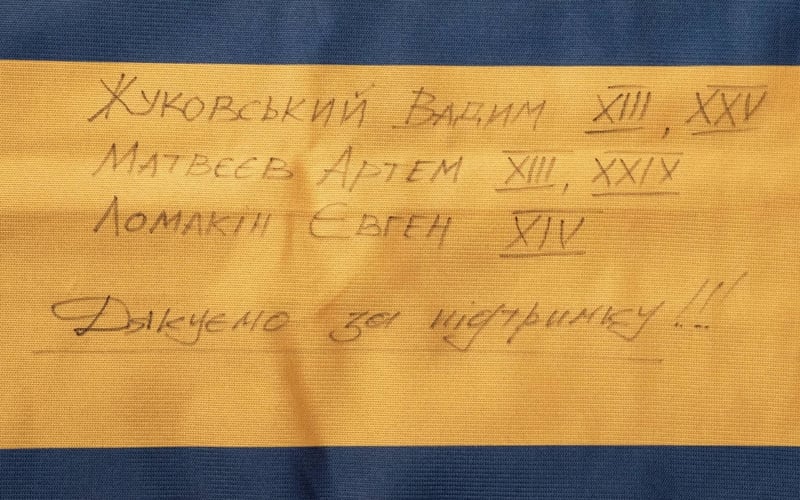 Жуковський Вадим XIII, XXV
Матвеєв Артем XIII, XXIX
Ломакін Євген XIV
Дякуємо за підтримку!!!